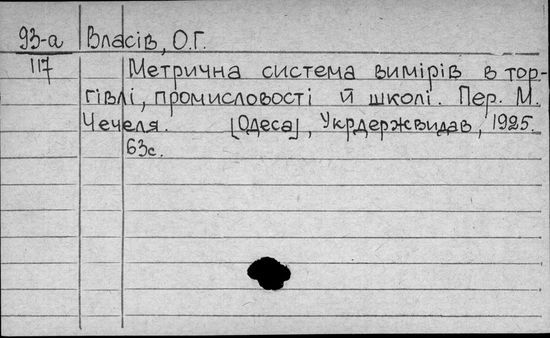 93-а Власів, О.Г.
117 Метрична система вимірів в тор-
гівлі, промисловості й школі. Пер. М.
Чечеля. [Одеса], Укрдержвидав, 1925.
63с.